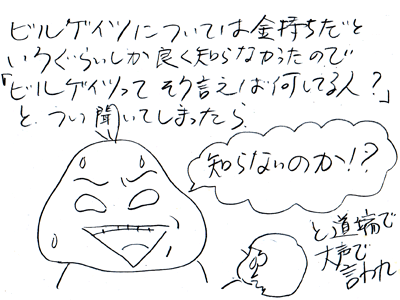 ビルゲイツについては金持ちだと
いうぐらいしか良く知らなかったので
「ビルゲイツって そう言えば何してる人？」
と、つい聞いてしまったら
知らないのか!?
と道端で
大声で
言われ